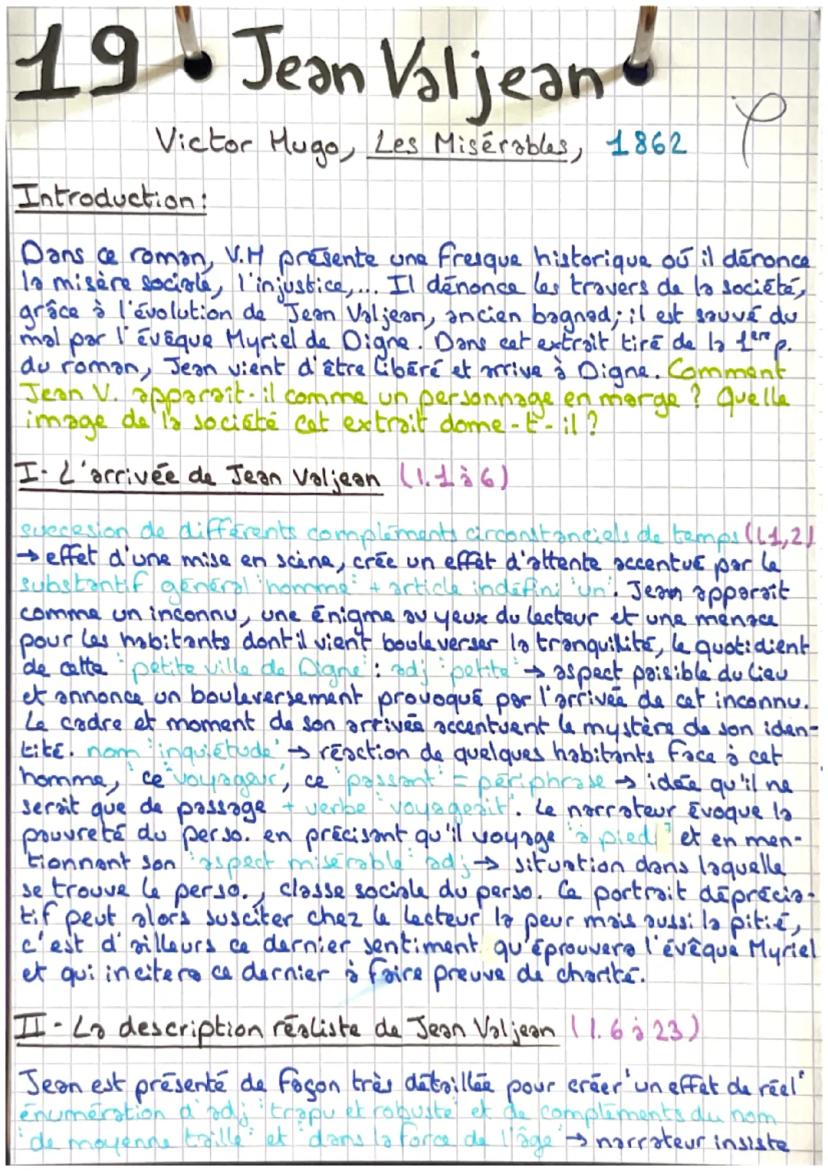 19 Jean Valjean
Victor Hugo, Les Misérables, 1862
Introduction:
Dans ce roman, V.H présente une fresque historique où il dénonce
la misère sociale, l'injustice,... Il dénonce les travers de la société,
grâce à l'évolution de Jean Valjean, ancien bagnad; il est sauvé du
mal par l'évêque Myriel de Digne. Dans cet extrait tiré de la 1ère p.
du roman, Jean vient d'être libéré et arrive à Digne. Comment
Jean V. apparait-il comme un personnage en marge ? Quelle
image de la société cet extrait donne-t-il ?
I- L'arrivée de Jean Valjean (l.1 à 6)
succesion de différents compléments circonstanciels de temps (l.1,2)
→ effet d'une mise en scène, crée un effet d'attente accentué par le
substantif général "homme" + article indéfini "un". Jean apparait
comme un inconnu, une énigme au yeux du lecteur et une menace
pour les habitants dont il vient bouleverser la tranquilité, le quotidient
de cette "petite ville de Digne": adj "petite" → aspect paisible du lieu
et annonce un bouleversement provoqué par l'arrivée de cet inconnu.
Le cadre et moment de son arrivée accentuent le mystère de son iden-
tité. nom "inquiétude" → réaction de quelques habitants face à cet
homme, ce "voyageur", ce "passant" = périphrase → idée qu'il ne
serait que de passage + verbe "voyageait". Le narrateur évoque la
pauvreté du perso. en précisant qu'il voyage "à pied" et en men-
tionnant son "aspect misérable" adj → situation dans laquelle
se trouve le perso., classe sociale du perso. Ce portrait déprécia-
tif peut alors susciter chez le lecteur la peur mais aussi la pitié,
c'est d'ailleurs ce dernier sentiment qu'éprouvera l'évêque Myriel
et qui incitera ce dernier à faire preuve de charité.
II- La description réaliste de Jean Valjean (l.6 à 23)
Jean est présenté de façon très détaillée pour créer "un effet de réel"
énumération d'adj "trapu et robuste" et de compléments du nom
"de moyenne taille" et "dans la force de l'âge" → narrateur insiste